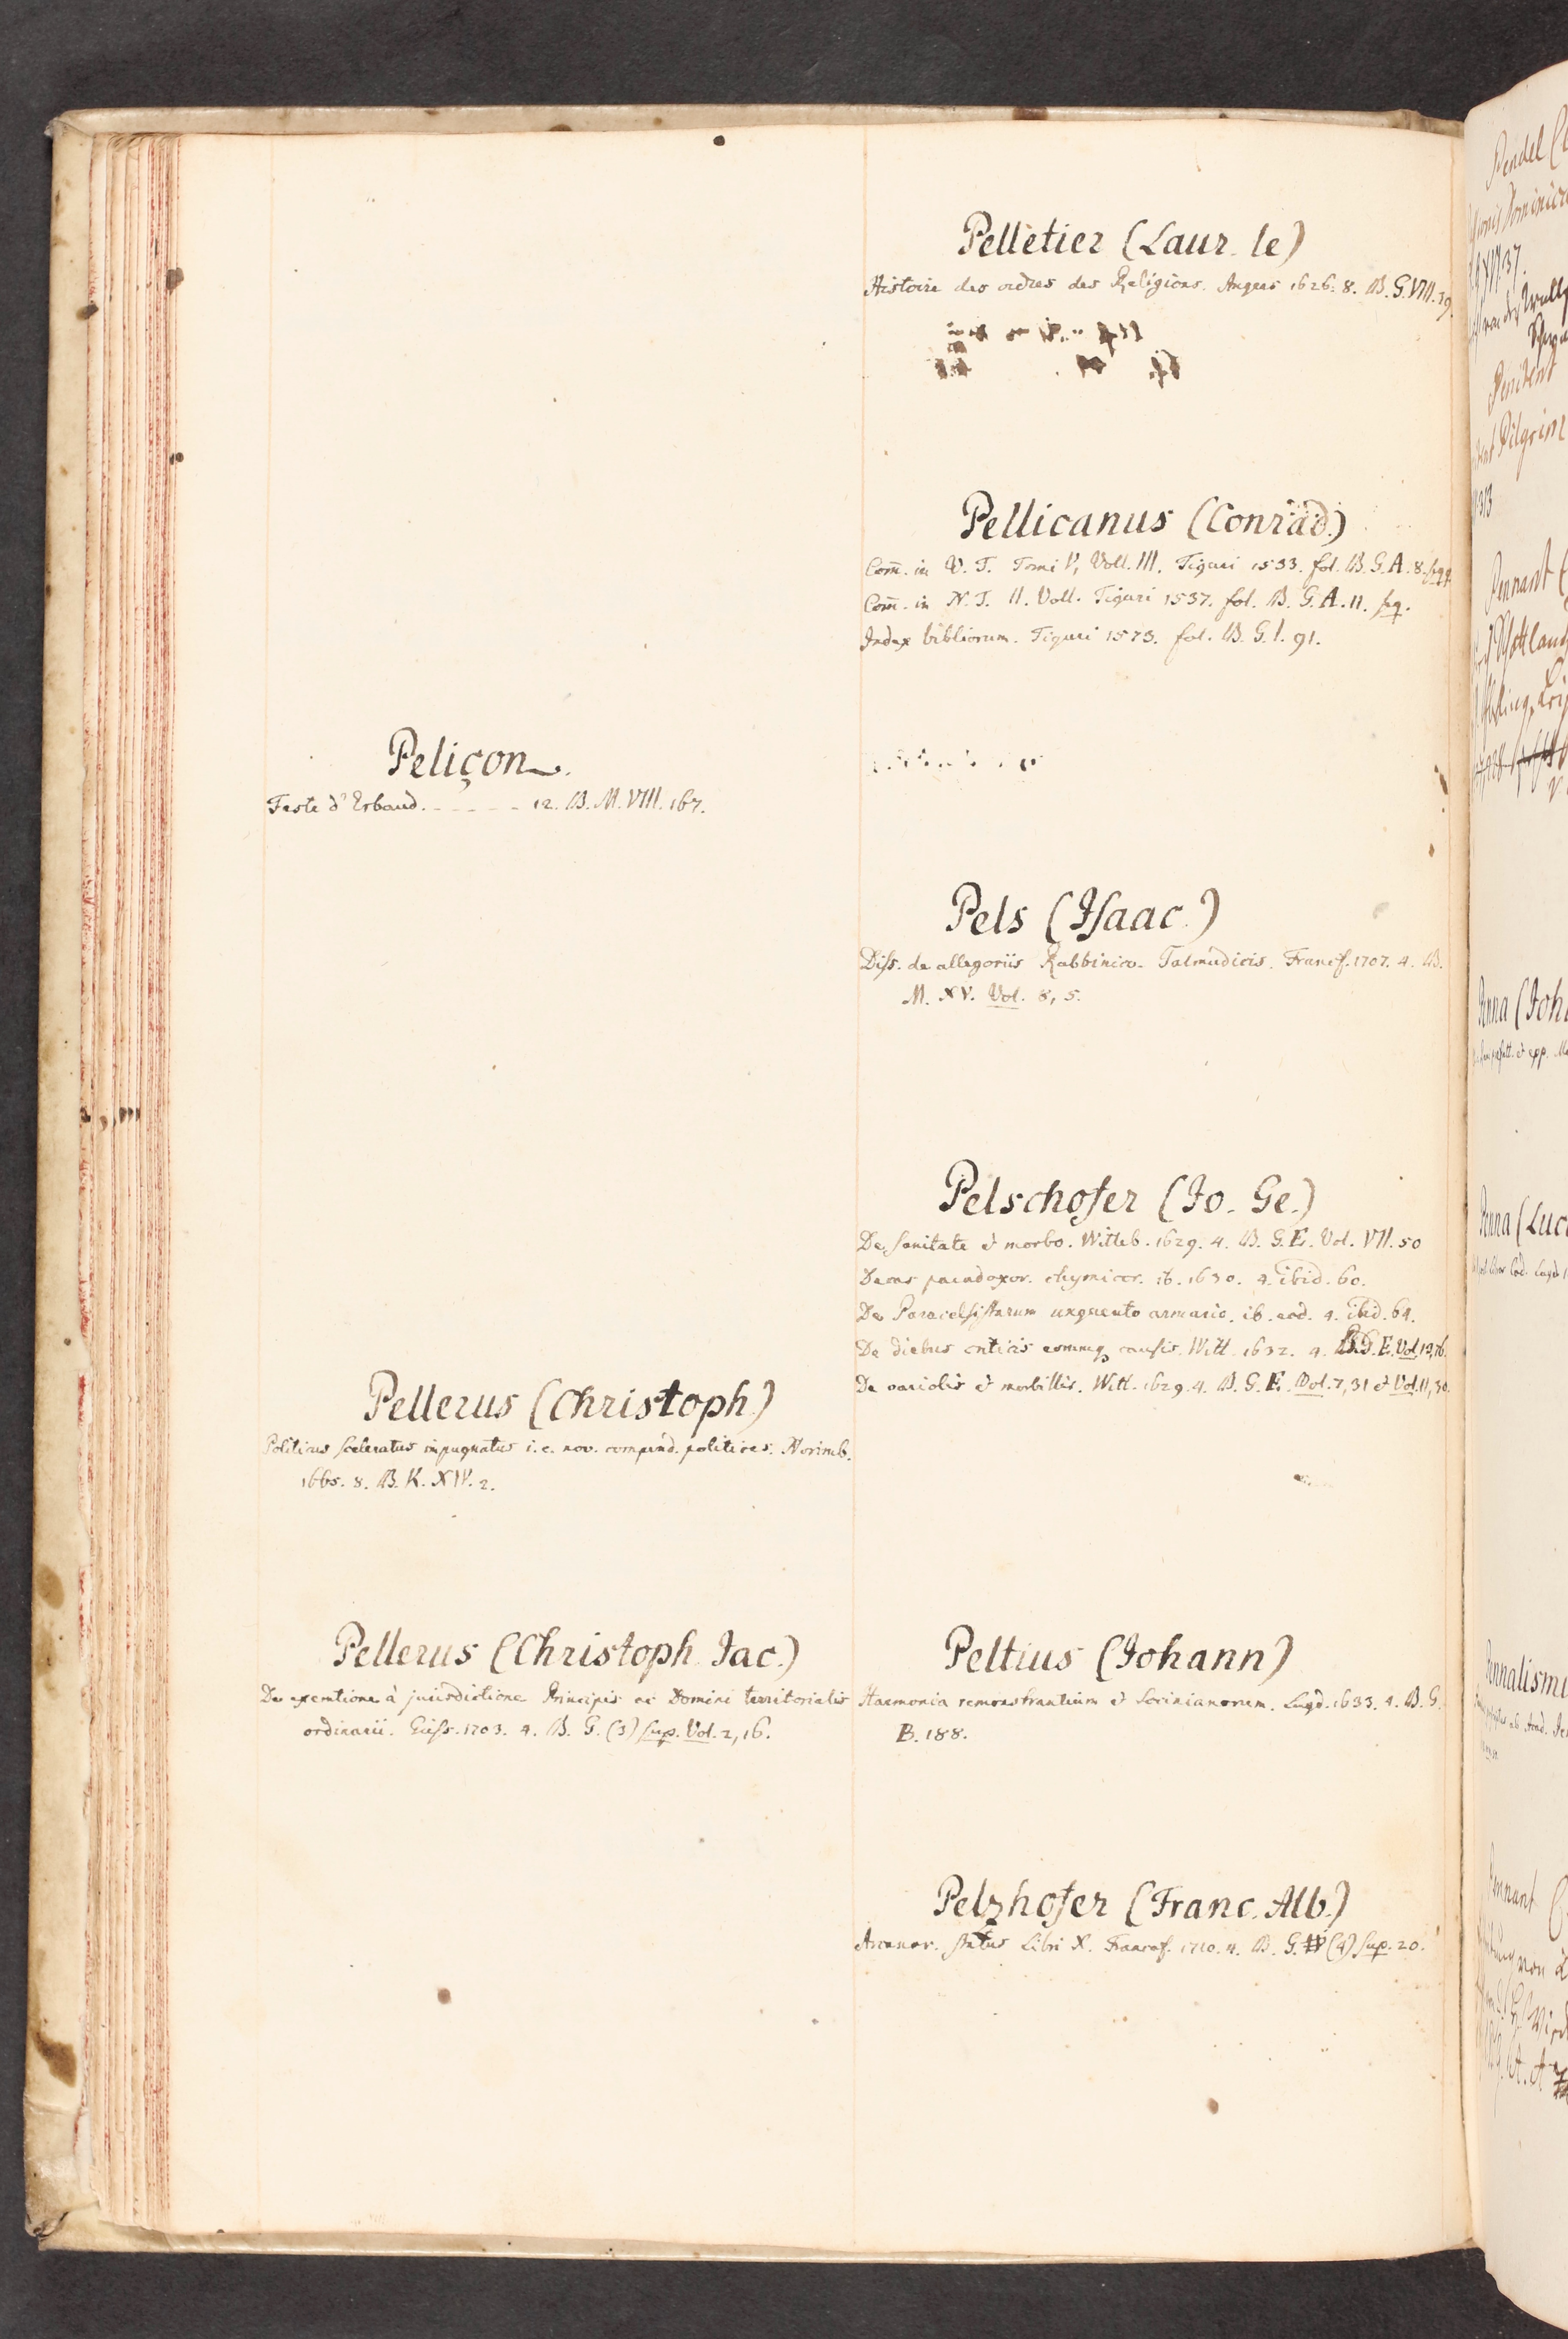 Peliçon.
Feste d'Erbaud. - - - - - 12. B. M. VIII. 167.
Pellerus (Christoph.)
Politicus sceleratus impugnatus i. e. nov. compend. politices. Norimb.
1665. 8. B. K. XIV. 2.
Pellerus (Christoph. Jac.)
De exemtione à jurisdictione Principis ac Domini territorialis
ordinarii. Giess. 1703. 4. B. G. (3) sup. Vol. 2, 16.
Pelletier (Laur. le)
Histoire des ordres des Religions. Angers 1626. 8. B. G. VIII. 39.
Pellicanus (Conrad.)
Com̄. in V. T. Tomi V, Voll. III. Tiguri 1533. fol. B. G. A. 8. seqq.
Com̄. in N. T. II. Voll. Tiguri 1537. fol. B. G. A. 11. seq.
Index bibliorum. Tiguri 1573. fol. B. G. I. 91.
Pels (Isaac.)
Diss. de allegoriis Rabbinico-Talmudicis. Francf. 1707. 4. B.
M. XV. Vol. 8, 5.
Pelschofer (Jo. Ge.)
De sanitate & morbo. Witteb. 1629. 4. B. G. E. Vol. VII. 50
Decas paradoxor. chymicor. ib. 1630. 4. ibid. 60.
De Paracelsistarum unguento armario. ib. eod. 4. ibid. 64.
De diebus criticis eorumq; causis. Witt. 1632. 4. B. G. E. Vol. 19, 16.
De variolis & morbillis. Witt. 1629. 4. B. G. E. Vol. 7, 31 & Vol. 11, 30.
Peltius (Johann)
Harmonia remonstrantium & Socinianorum. Lugd. 1633. 4. B. G.
B. 188.
Pelzhofer (Franc. Alb.)
Arcanor. status Libri X. Francof. 1710. 4. B. G. (4) sup. 20.